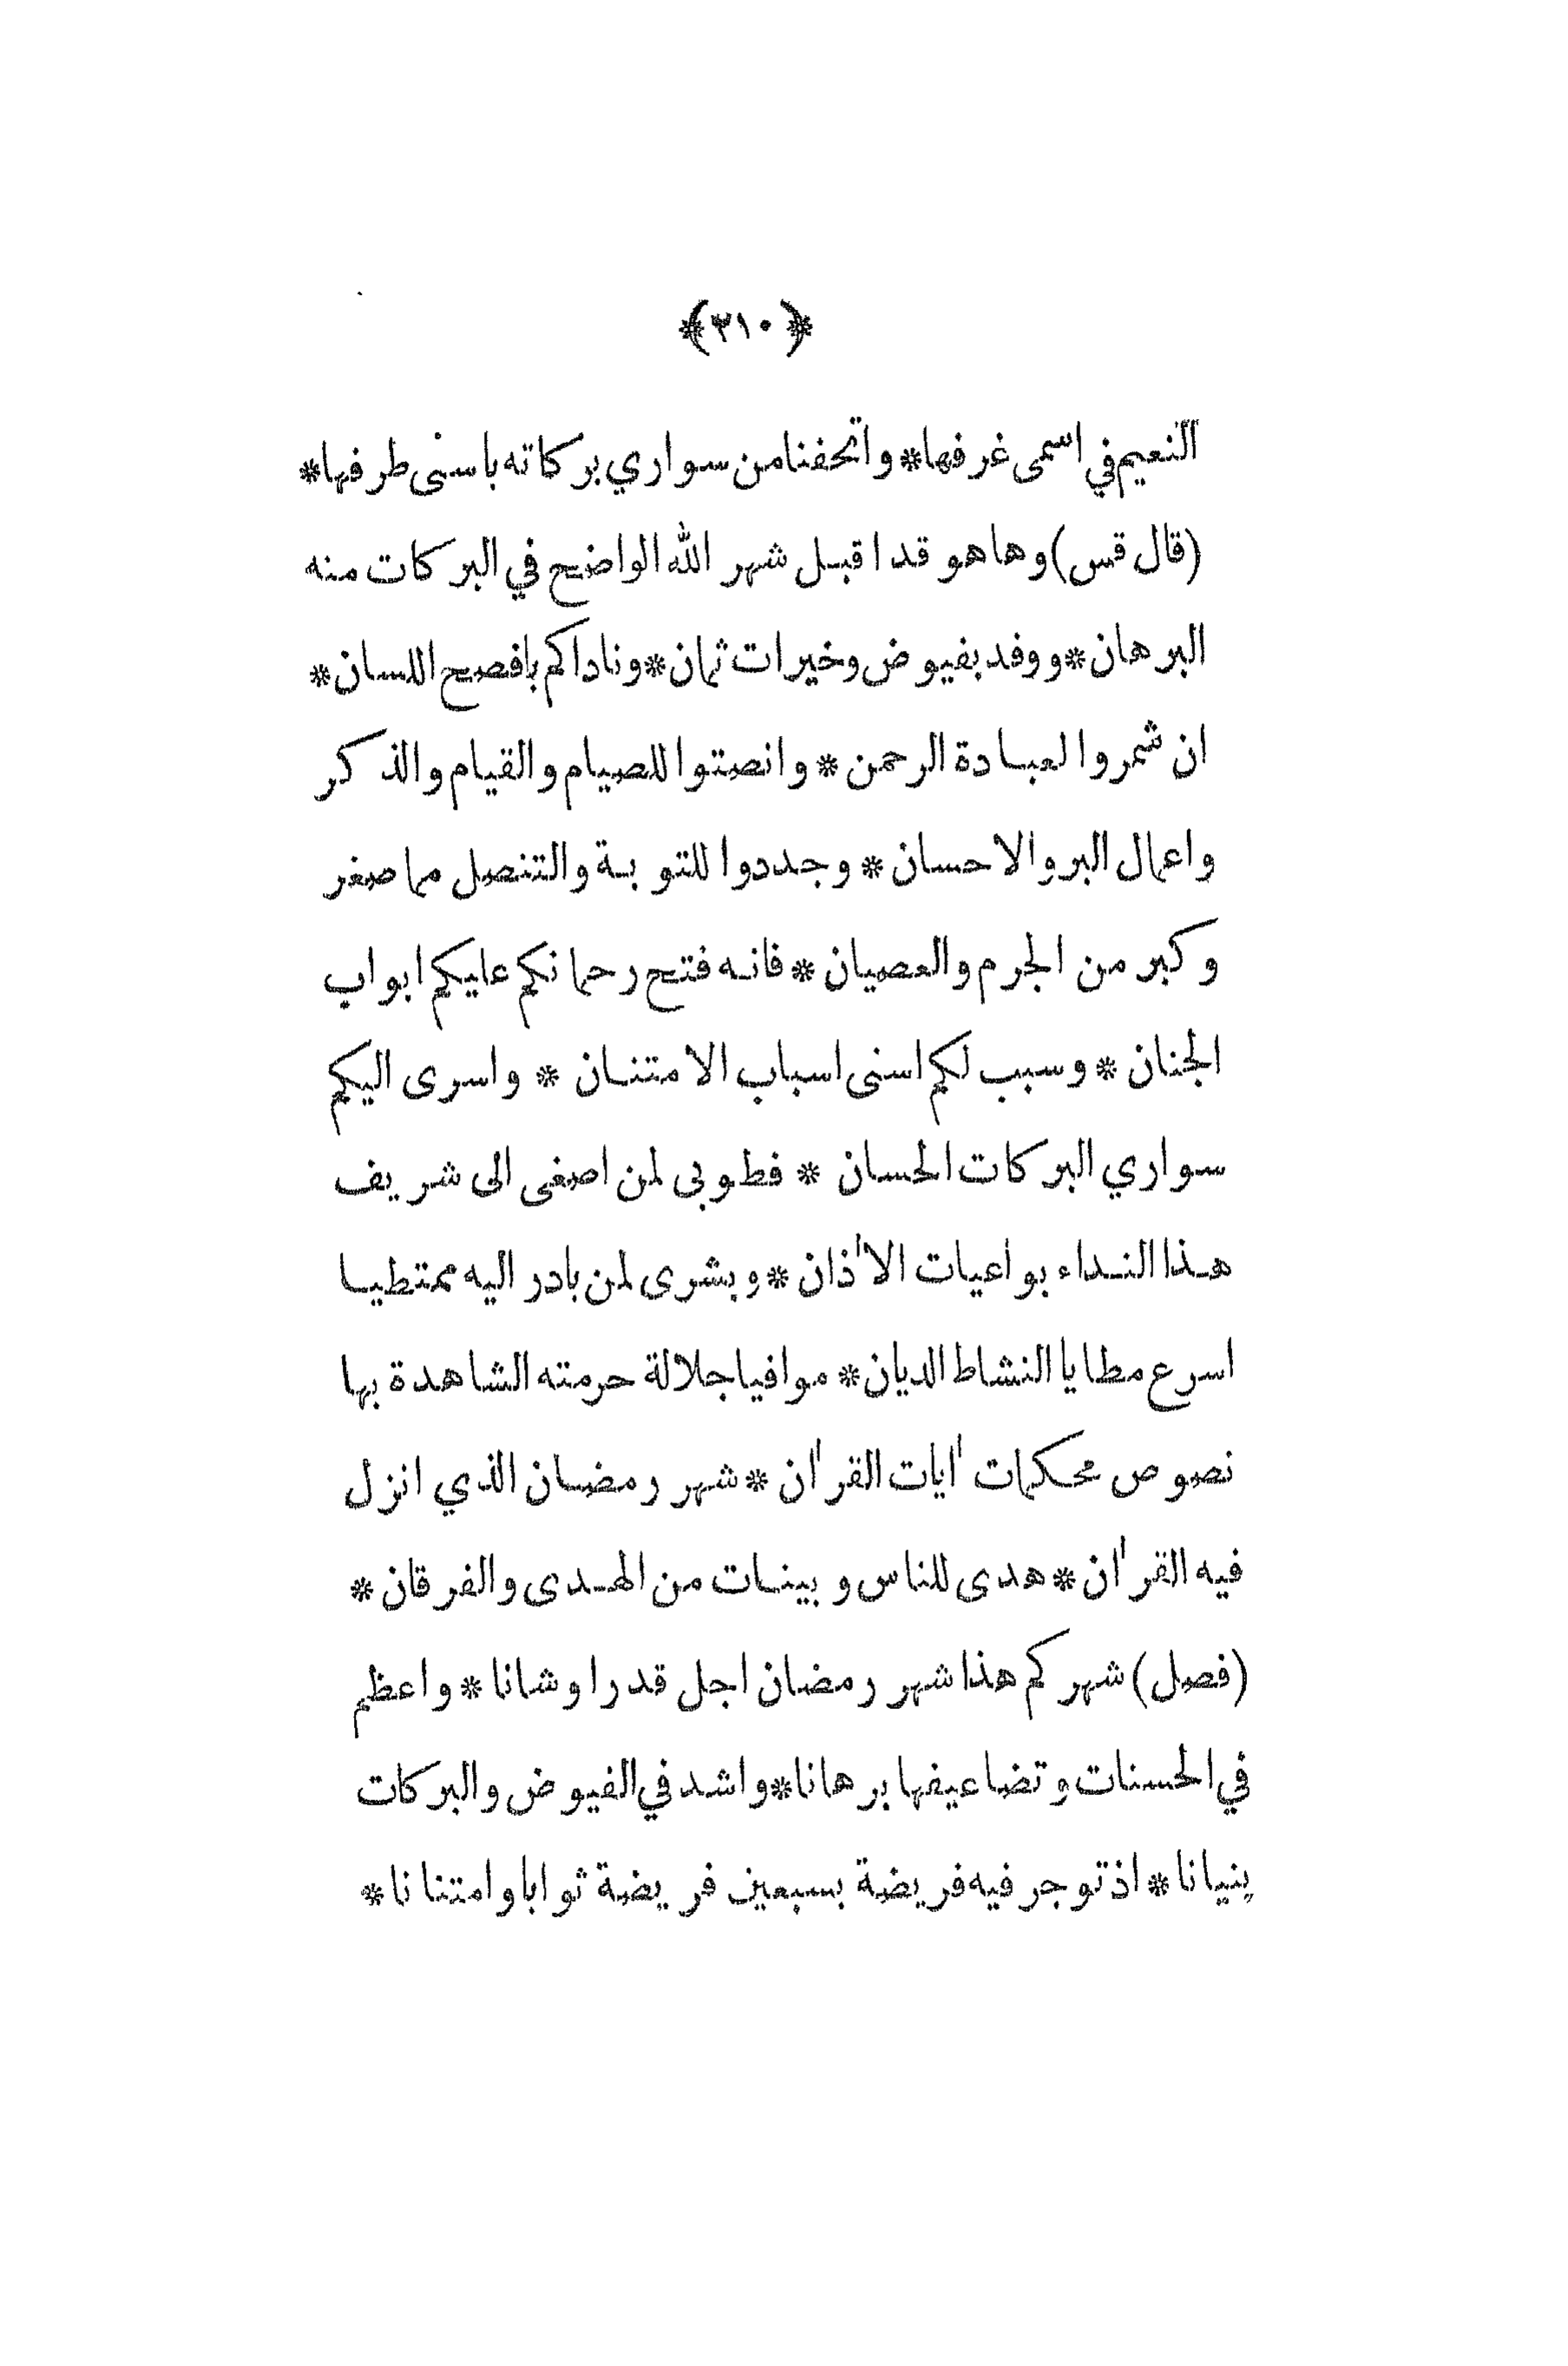 ﴿٣١٠﴾
النعيم في اسمى غرفها* واتحفنا من سواري بركاته باسنى طرفها*
(قال قس) وها هو قد اقبل شهر الله الواضح في البركات منه
البرهان* ووفد بفيوض وخيرات ثمان* وناداكم بافصح اللسان*
ان شمروا لعبادة الرحمن* وانصتوا للصيام والقيام والذكر
واعمال البر والاحسان* وجددوا للتوبة والتنصل مما صغر
وكبر من الجرم والعصيان* فانه فتح رحمانكم عليكم ابواب
الجنان* وسبب لكم اسنى اسباب الامتنان* واسرى اليكم
سواري البركات الحسان* فطوبى لمن اصغى الى شريف
هذا النداء بواعيات الاٰذان* وبشرى لمن بادر اليه ممتطيا
اسرع مطايا النشاط الديان* موافيا جلالة حرمته الشاهدة بها
نصوص محكمات اٰيات القراٰن* شهر رمضان الذي انزل
فيه القراٰن* هدى للناس وبينات من الهدى والفرقان*
(فصل) شهركم هذا شهر رمضان اجل قدرا وشانا* واعظم
في الحسنات وتضاعيفها برهانا* واشد في الفيوض والبركات
بنيانا* اذ توجر فيه فريضة بسبعين فريضة ثوابا وامتنانا*